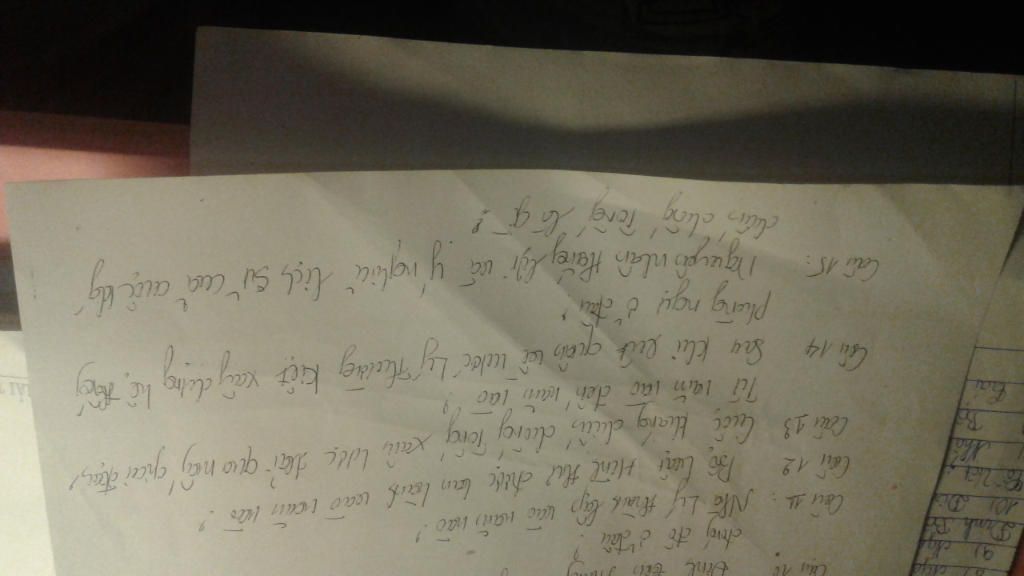 Câu 10 Đinh Tiên Hoàng
đóng đô ở đâu ?
Câu 11 : Nhà Lý thành lập vào năm nào ?
Câu 12 Bộ luật Hình thư được ban hành vào năm nào ?
Câu 13 Cuộc kháng chiến chống Tống xâm lược trải qua mấy giai đoạn,
Từ năm nào đến năm nào ?
Câu 14 Sau khi rút quân về nước Lý Thường Kiệt xây dựng hệ thống
phòng ngự ở đâu ?
Câu 15 : Nguyên nhân thắng lợi và ý nghĩa lịch sử của cuộc kháng
chiến chống Tống là gì ?